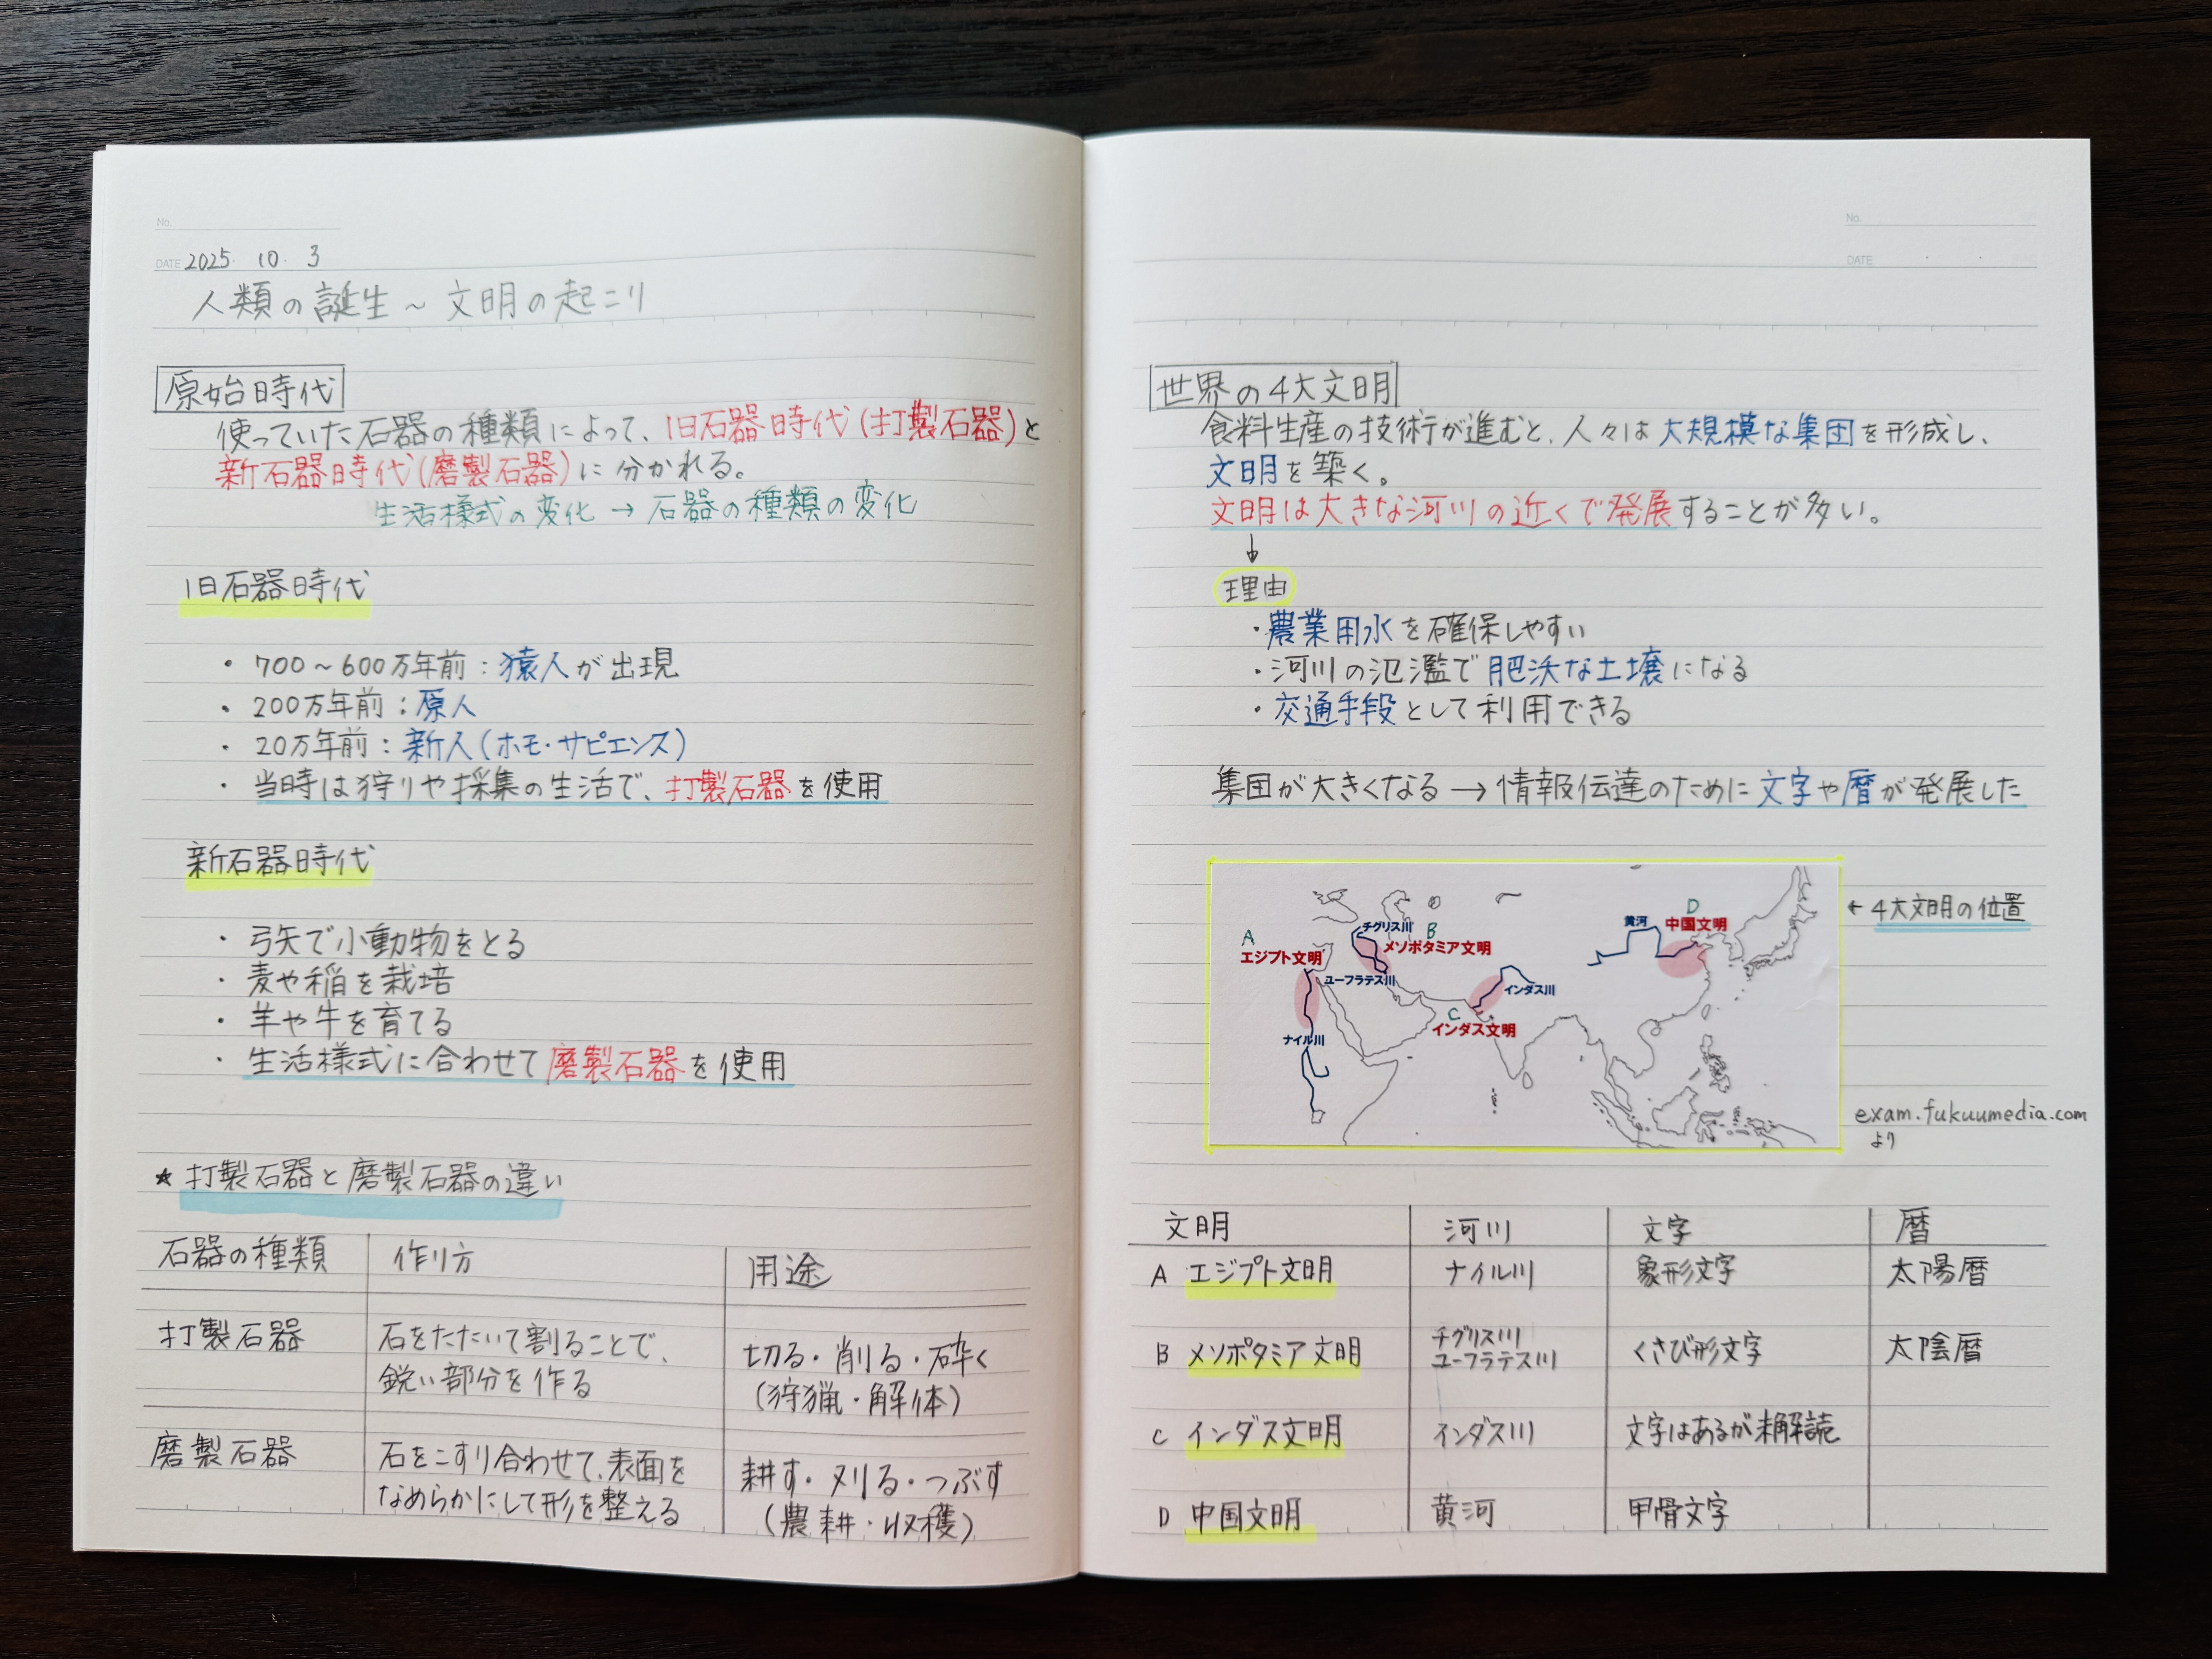 No.
DATE 2025. 10. 3
人類の誕生～文明の起こり
原始時代
使っていた石器の種類によって、旧石器時代(打製石器)と
新石器時代(磨製石器)に分かれる。
生活様式の変化→石器の種類の変化
旧石器時代
・700～600万年前：猿人が出現
・200万年前：原人
・20万年前：新人(ホモ・サピエンス)
・当時は狩りや採集の生活で、打製石器を使用
新石器時代
・弓矢で小動物をとる
・麦や稲を栽培
・羊や牛を育てる
・生活様式に合わせて磨製石器を使用
★打製石器と磨製石器の違い
石器の種類 作り方 用途
打製石器 石をたたいて割ることで、 切る・削る・砕く
鋭い部分を作る (狩猟・解体)
磨製石器 石をこすり合わせて、表面を 耕す・刈る・つぶす
なめらかにして形を整える (農耕・収穫)
No.
DATE . .
世界の4大文明
食料生産の技術が進むと、人々は大規模な集団を形成し、
文明を築く。
文明は大きな河川の近くで発展することが多い。
↓
理由
・農業用水を確保しやすい
・河川の氾濫で肥沃な土壌になる
・交通手段として利用できる
集団が大きくなる→情報伝達のために文字や暦が発展した
A
エジプト文明
ナイル川
チグリス川
B
メソポタミア文明
ユーフラテス川
C
インダス文明
インダス川
黄河
D
中国文明
←4大文明の位置
exam.fukuumedia.com
より
文明 河川 文字 暦
A エジプト文明 ナイル川 象形文字 太陽暦
B メソポタミア文明 チグリス川 くさび形文字 太陰暦
ユーフラテス川
C インダス文明 インダス川 文字はあるが未解読
D 中国文明 黄河 甲骨文字